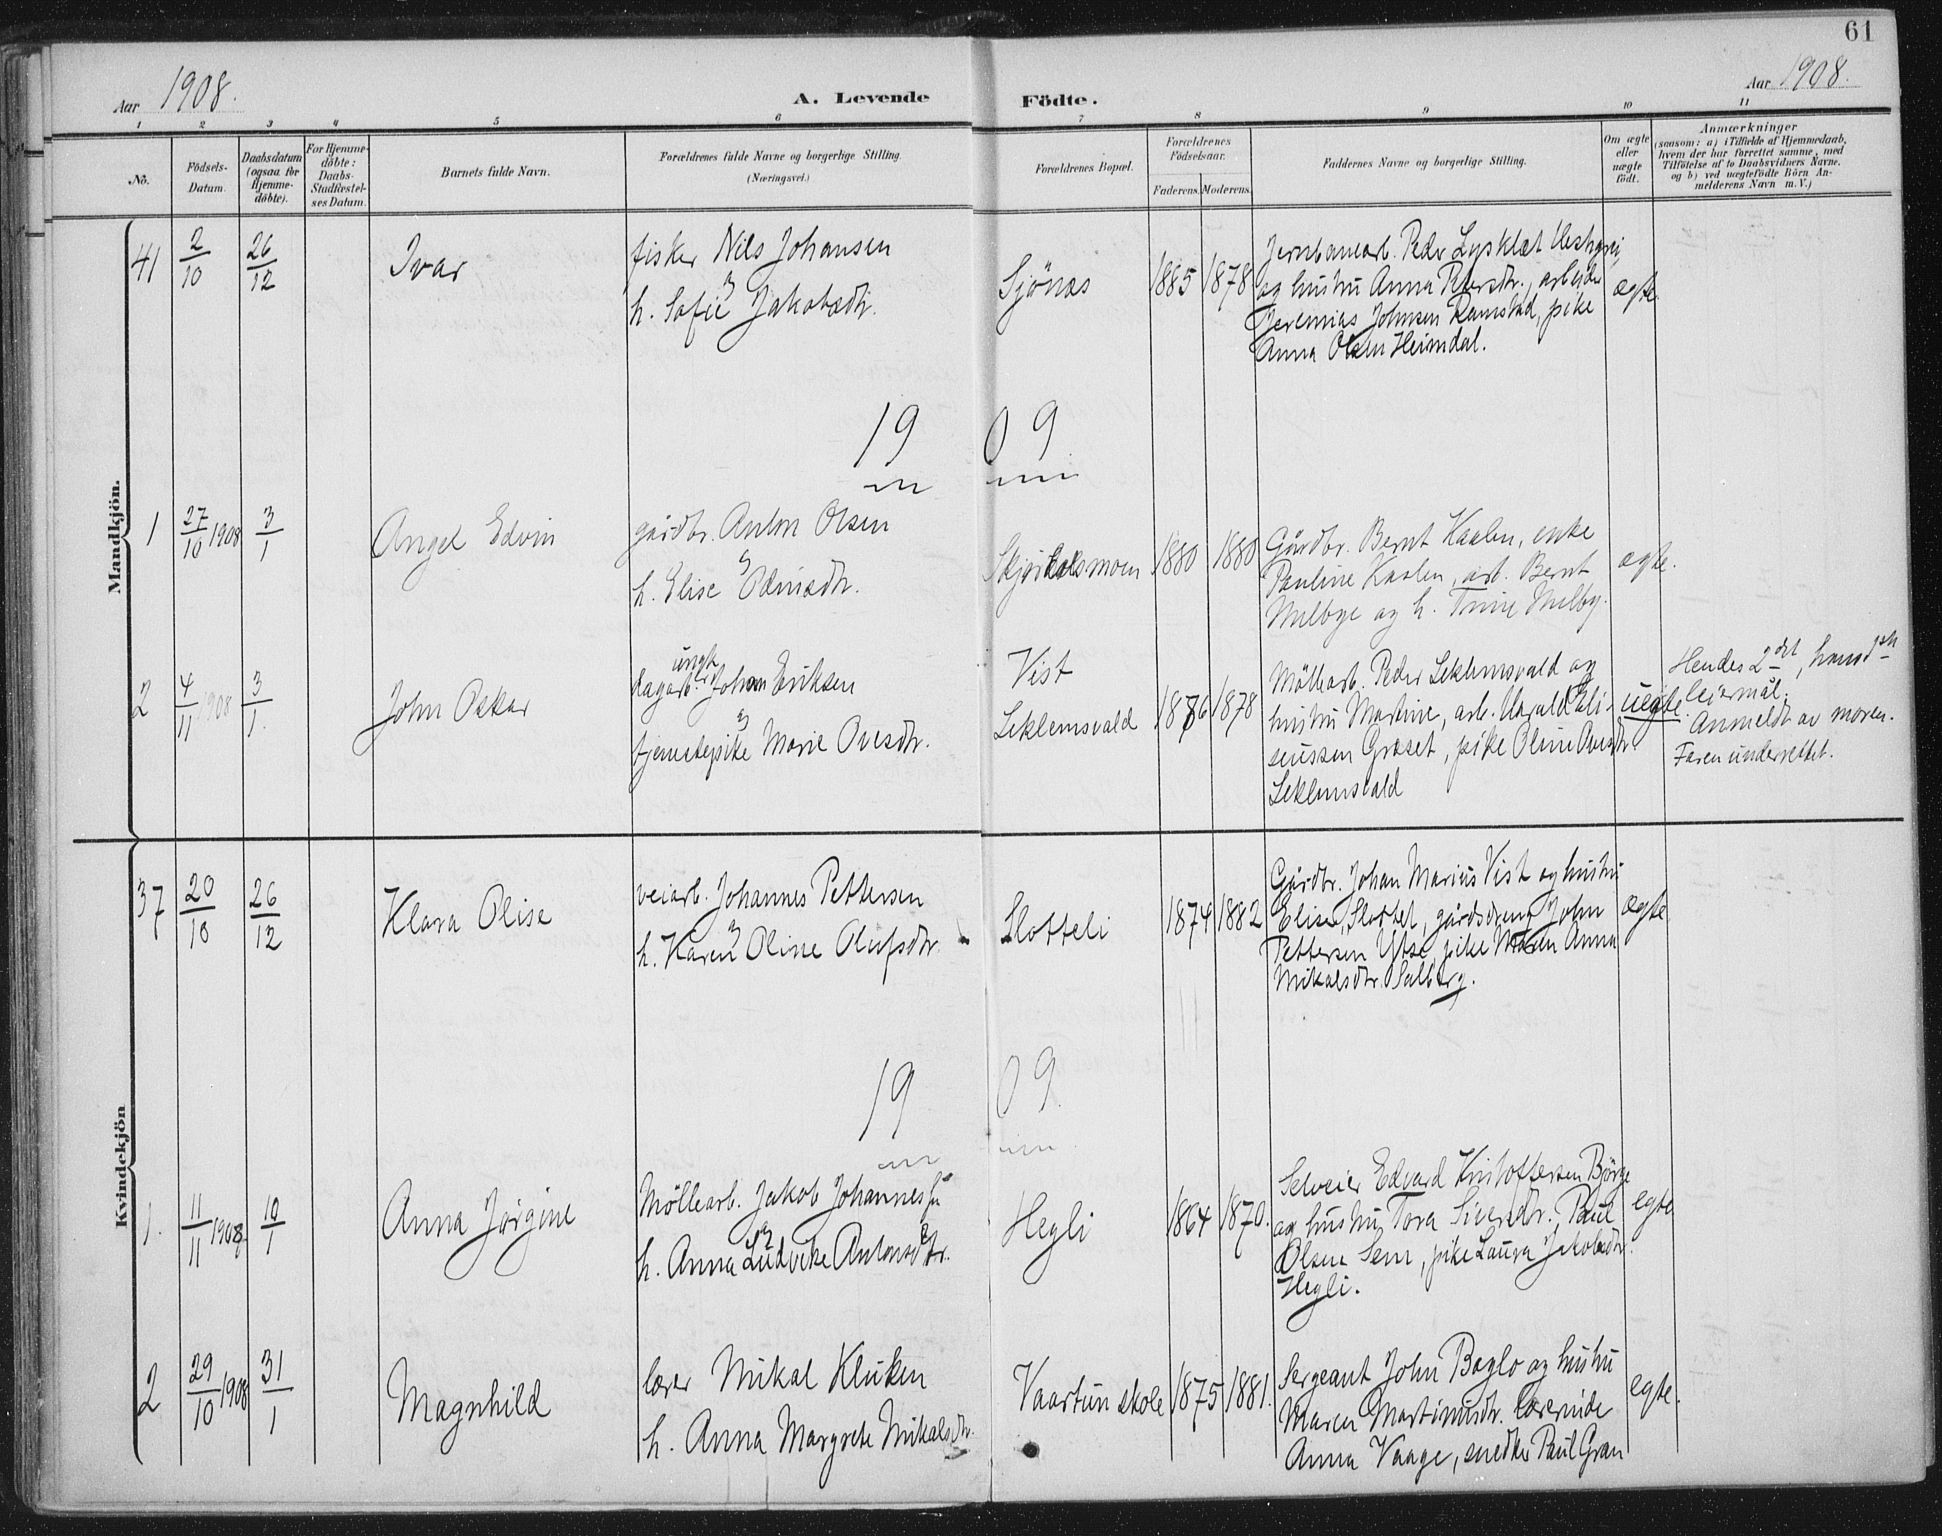 61
Aar 1908.
A. Levende Födte.
Aar 1908.
1 2 3 4 5 6 7 8 9 10 11
No.
Födsels-
Datum.
Daabsdatum
(ogsaa for
Hjemme-
döbte).
For Hjemme-
döbte:
Daabs-
Stadfæstel-
ses Datum.
Barnets fulde Navn.
Forældrenes fulde Navne og borgerlige Stilling.
(Næringsvei.)
Forældrenes Bopæl.
Forældrenes
Födselsaar.
Faderens. Moderens.
Faddernes Navne og borgerlige Stilling.
Om ægte
eller
uægte
födt.
Anmærkninger
(saasom: a) i Tilfælde af Hjemmedaab,
hvem der har forrettet samme, med
Tilföielse af to Daabsvidners Navne.
og b) ved uægtefödte Börn An-
melderens Navn m. V.)
Mandkjön.
41 2/10 26/12 Ivar
fisker Nils Johansen
og
h. Sofie Jakobsdtr.
Sjönas 1885 1878
Jernbanearb. Peder Lysklæt
og hustru Anna Pedersdtr., arbejder
Jeremias Johnsen Ramstad, pike
Anna Olsen Heimdal.
ægte.
19 09
1 27/10 1908 3/1 Angel Edvin
gårdbr. Anton Olsen
og
h. Elise Odinsdtr.
Skjördalsmoen 1880 1880
Gårdbr. Bernt Kaalen, enke
Pauline Kaalen, arb. Bernt
Melbye og h. Trine Melby.
ægte.
2 4/11 1908 3/1. John Oskar
ungk.
dagarb. Johan Eriksen
og
tjenestepike Marie Ovesdtr.
Vist
Leklemsvald 1876 1878
Möllearb. Peder Leklemsvald og
hustru Martine, arb. Harald Eli-
seussen Græset, pike Oline Ovesdtr
Leklemsvald
uegte.
Hendes 2det, hans 1ste
leiermål.
Anmeldt av moren.
Faren underrettet.
Kvindekjön
37 20/10 26/12 Klara Olise
veiarb. Johannes Pettersen
og
h. Karen Oline Olufsdtr.
Slotteli 1874 1882
Gårdbr. Johan Marius Vist og hustru
Elise, Slottet, gårdsdreng John
Pettersen Ytse, pike Maren Anna
Mikalsdtr. Salberg.
ægte
19 09.
1. 11/11 1908 10/1 Anna Jörgine
Möllearb. Jakob Johannes
og
h. Anna Ludvike Antonsdtr.
Hegli 1864 1870.
Selveier Edvard Kristoffersen Börge
og hustru Tora Sivertsdtr., Paul
Olsen Sem, pike Laura Jakobsdtr.
Hegli.
egte
2 29/10 1908 31/1 Magnhild
lærer Mikal Kluken
h. Anna Margrete Mikalsdtr.
Vaartun skole 1875 1881.
Sergeant John Baglo og hustru
Maren Martinusdtr. lærerinde
Anna Vaage, snedker Paul Gran
egte.